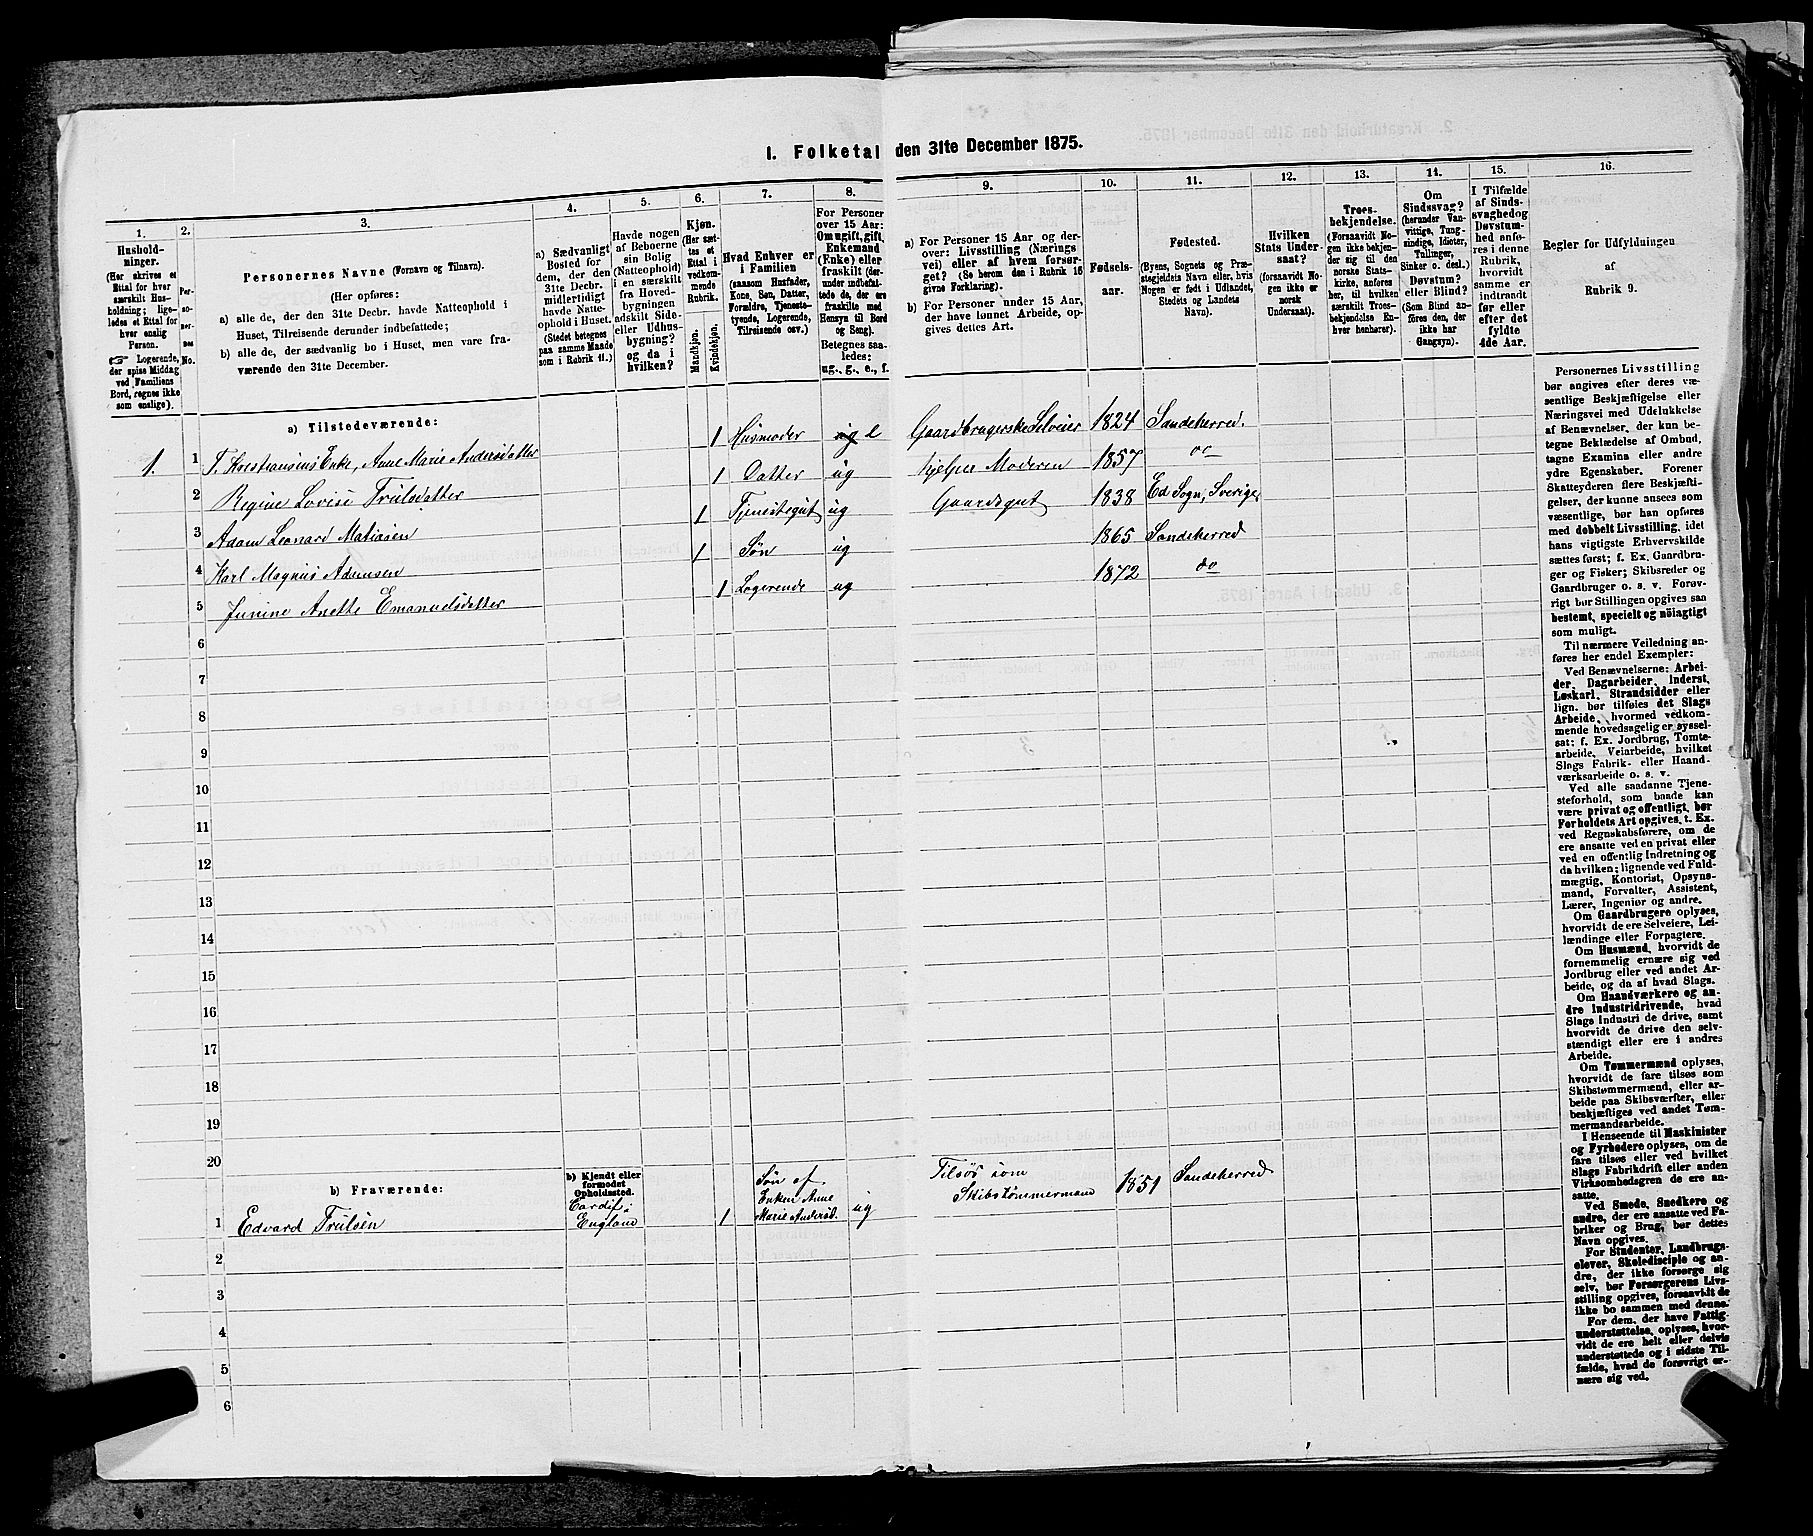 1. Folketal den 31te December 1875.
1.
Hushold-
ninger.
(Her skrives et
Ettal for hver
særskilt Hus-
holdning; lige-
ledes et Ettal for
hver enslig
Person.
☞ Logerende,
der spise Middag
ved Familiens
Bord, regnes ikke
som enslige).
2.
Per-
so-
ner-
nes
No.
3.
Personernes Navne (Fornavn og Tilnavn).
(Her opføres:
a) alle de, der den 31te Decbr. havde Natteophold i
Huset, Tilreisende derunder indbefattede;
b) alle de, der sædvanlig bo i Huset, men vare fra-
værende den 31te December.
4.
a) Sædvanligt
Bosted for
dem, der den
31te Decbr.
midlertidigt
havde Natte-
ophold i Huset.
(Stedet betegnes
paa samme Maade
som i Rubrik 11.)
5.
Havde nogen
af Beboerne
sin Bolig
(Natteophold)
i en særskilt
fra Hoved-
bygningen
adskilt Side-
eller Udhus-
bygning?
og da i
hvilken?
6.
Kjøn.
(Her sæt-
tes et
Ettal i
vedkom-
mende
Rubrik.
Mandkjøn.
Kvindekjøn.
7.
Hvad Enhver er
i Familien
(saasom Husfader,
Kone, Søn, Datter,
Forældre, Tjeneste-
tyende, Logerende,
Tilreisende osv.)
8.
For Personer
over 15 Aar:
Om ugift, gift,
Enkemand
(Enke) eller
fraskilt (der-
under indbefat-
tede de, der ere
fraskilte med
Hensyn til Bord
og Seng).
Betegnes saa-
ledes:
ug., g., e., f.
9.
a) For Personer 15 Aar og der-
over: Livsstilling (Nærings-
vei) eller af hvem forsør-
get? (Se herom den i Rubrik 16
givne Forklaring).
b) For Personer under 15 Aar,
der have lønnet Arbeide, op-
gives dettes Art.
10.
Fødsels-
aar.
11.
Fødested.
(Byens, Sognets og Præ-
stegjeldets Navn eller, hvis
Nogen er født i Udlandet,
Stedets og Landets
Navn).
12.
Hvilken
Stats Under-
saat?
(forsaavidt No-
gen ikke er
norsk
Undersaat).
13.
Troes-
bekjendelse.
(Forsaavidt No-
gen ikke bekjen-
der sig til den
norske Stats-
kirke, anføres
her, til hvilken
særskilt Troes-
bekjendelse En-
hver henhører).
14.
Om
Sindssvag?
(herunder Van-
vittige, Tung-
sindige, Idioter,
Tullinger,
Sinker o. desl.)
Døvstum?
eller Blind?
(Som Blind an-
føres den, der
ikke har
Gangsyn).
15.
I Tilfælde
af Sinds-
svaghed og
Døvstum-
hed anfø-
res i denne
Rubrik,
hvorvidt
samme er
indtraadt
før eller
efter det
fyldte
4de Aar.
16.
Regler for Udfyldningen
af
Rubrik 9.
a) Tilstedeværende:
1. 1 T. Krestiansens Enke, Anne Marie Andersdatter 1 Husmoder ug e Gaardbrugerske Selveier 1824 Sandeherred.
2 Regine Lovise Trulsdatter 1 Datter ug hjelper Moderen 1857 do
3 Adam Leonard Matiasen 1 Tjenstegut ug Gaardsgut 1838 Ed Sogn, Sverige,
4 Karl Magnus Adamsen 1 Søn ug 1865 Sandeherred
5 Junine Anette Emanuelsdatter 1 Logerende ug 1872 do
6
7
8
9
10
11
12
13
14
15
16
17
18
19
20
b) Fraværende:
b) Kjendt eller
formodet
Opholdssted.
1 Edvard Trulsen
Cardif i
England
1
Søn af
Enken Anne
Marie Andersd.
ug
Tilsøs som
Skibstømmermand
1851 Sandeherred
2
3
4
5
6
Personernes Livsstilling
bør angives efter deres væ-
sentlige Beskjæftigelse eller
Næringsvei med Udelukkelse
af Benævnelser, der kun be-
tegne Beklædelse af Ombud,
tagne Examina eller andre
ydre Egenskaber. Forener
Skatteyderen flere Beskjæfti-
gelser, der kunne ansees som
væsentlige, bør han opføres
med dobbelt Livsstilling, idet
hans vigtigste Erhvervskilde
sættes først; f. Ex. Gaardbru-
ger og Fisker; Skibsreder og
Gaardbruger o. s. v. Forøv-
rigt bør Stillingen opgives saa
bestemt, specielt og nøiagtigt
som muligt.
Til nærmere Veiledning an-
føres her endel Exempler:
Ved Benævnelserne: Arbei-
der, Dagarbeider, Inderst,
Løskarl, Strandsidder eller
lign. bør tilføies det Slags
Arbeide, hvormed vedkom-
mende hovedsagelig er syssel-
sat; f. Ex. Jordbrug, Tomte-
arbeide, Veiarbeide, hvilket
Slags Fabrik- eller Haand-
værksarbeide o. s. v.
Ved alle saadanne Tjene-
steforhold, som baade kan
være privat og offentligt, bør
Forholdets Art opgives, t. Ex.
ved Regnskabsførere, om de
ere ansatte ved en privat eller
ved en offentlig Indretning og
da hvilken; lignende ved Fuld-
mægtig, Kontorist, Opsyns-
mand, Forvalter, Assistent,
Lærer, Ingeniør og andre.
Om Gaardbrugere oplyses,
hvorvidt de ere Selveiere, Lei-
lændinge eller Forpagtere.
Om Husmænd, hvorvidt de
fornemmelig ernære sig ved
Jordbrug eller ved andet Ar-
beide, og da af hvad Slags.
Om Haandværkere og an-
dre Industridrivende, hvad
Slags Industri de drive, samt
hvorvidt de drive den selv-
stændigt eller ere i andres
Arbeide.
Om Tømmermænd oplyses,
hvorvidt de fare tilsøs som
Skibstømmermænd, eller ar-
beide paa Skibsværfter, eller
beskjæftiges ved andet Tøm-
mermandsarbeide.
I Henseende til Maskinister
og Fyrbødere oplyses, om de
fare tilsøs eller ved hvilket
Slags Fabrikdrift eller anden
Virksomhedsgren de ere an-
satte.
Ved Smede, Snedkere og
andre, der ere ansatte ved Fa-
briker og Brug, bør dettes
Navn opgives.
For Studenter, Landbrugs-
elever, Skoledisciple og an-
dre, der ikke forsørge sig
selv, bør Forsørgerens Livs-
stilling opgives, forsaavidt de
ikke bo sammen med denne.
For dem, der have Fattig-
understøttelse, oplyses, hvor-
vidt de ere helt eller delvis
understøttede og i sidste Til-
fælde, hvad de forøvrigt er-
nære sig ved.